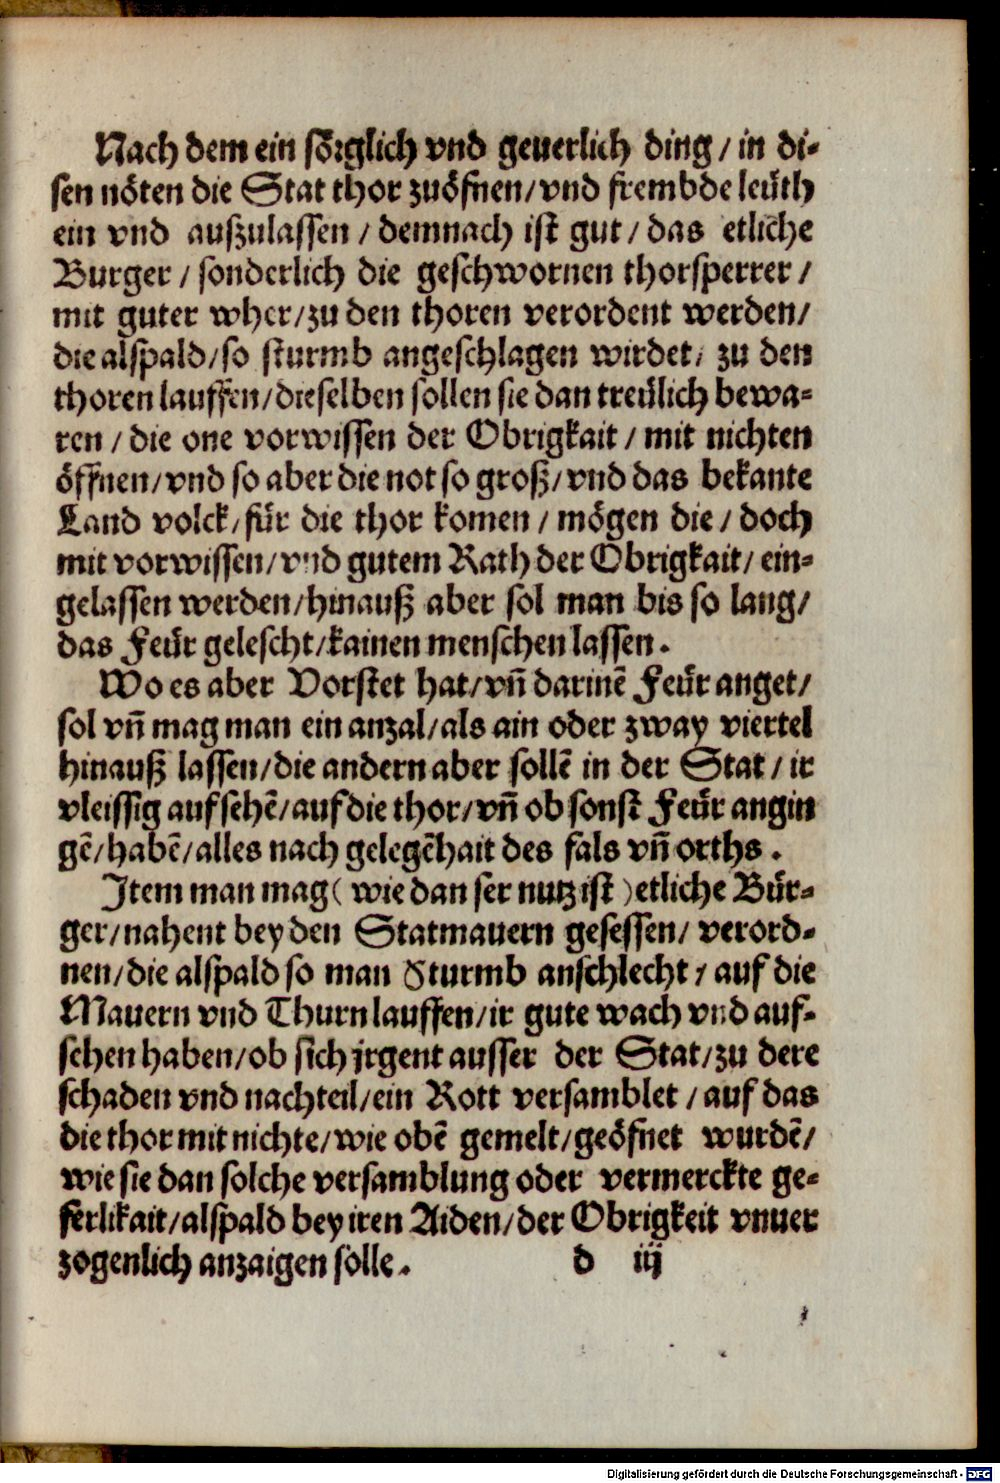 Nach dem ein sörglich vnd geuerlich ding / in di-
sen nöten die Stat thor zuöfnen / vnd frembde leüth
ein vnd außzulassen / demnach ist gut / das etliche
Burger / sonderlich die geschwornen thorsperrer /
mit guter wher / zu den thoren verordent werden /
die alspald / so sturmb angeschlagen wirdet / zu den
thoren lauffen / dieselben sollen sie dan treülich bewa-
ren / die one vorwissen der Obrigkait / mit nichten
öffnen / vnd so aber die not so groß / vnd das bekante
Land volck / für die thor komen / mögen die / doch
mit vorwissen / vnd gutem Rath der Obrigkait / ein-
gelassen werden / hinauß aber sol man bis so lang /
das Feür gelescht / kainen menschen lassen .
Wo es aber Vorstet hat / vñ darinē Feür anget /
sol vñ mag man ein anzal / als ain oder zway viertel
hinauß lassen / die andern aber sollē in der Stat / ir
vleissig auf sehē / auf die thor / vñ ob sonst Feür angin
gē / habē / alles nach gelegēhait des fals vñ orths .
Item man mag ( wie dan ser nutz ist ) etliche Bür-
ger / nahent bey den Statmauern gesessen / verord-
nen / die alspald so man Sturmb anschlecht / auf die
Mauern vnd Thurn lauffen / ir gute wach vnd auf-
sehen haben / ob sich jrgent ausser der Stat / zu dere
schaden vnd nachteil / ein Rott versamblet / auf das
die thor mit nichte / wie obē gemelt / geöfnet wurdē /
wie sie dan solche versamblung oder vermerckte ge-
ferlikait / alspald bey iren Aiden / der Obrigkeit vnuer
zogenlich anzaigen solle .
d iij
Digitalisierung gefördert durch die Deutsche Forschungsgemeinschaft - DFG